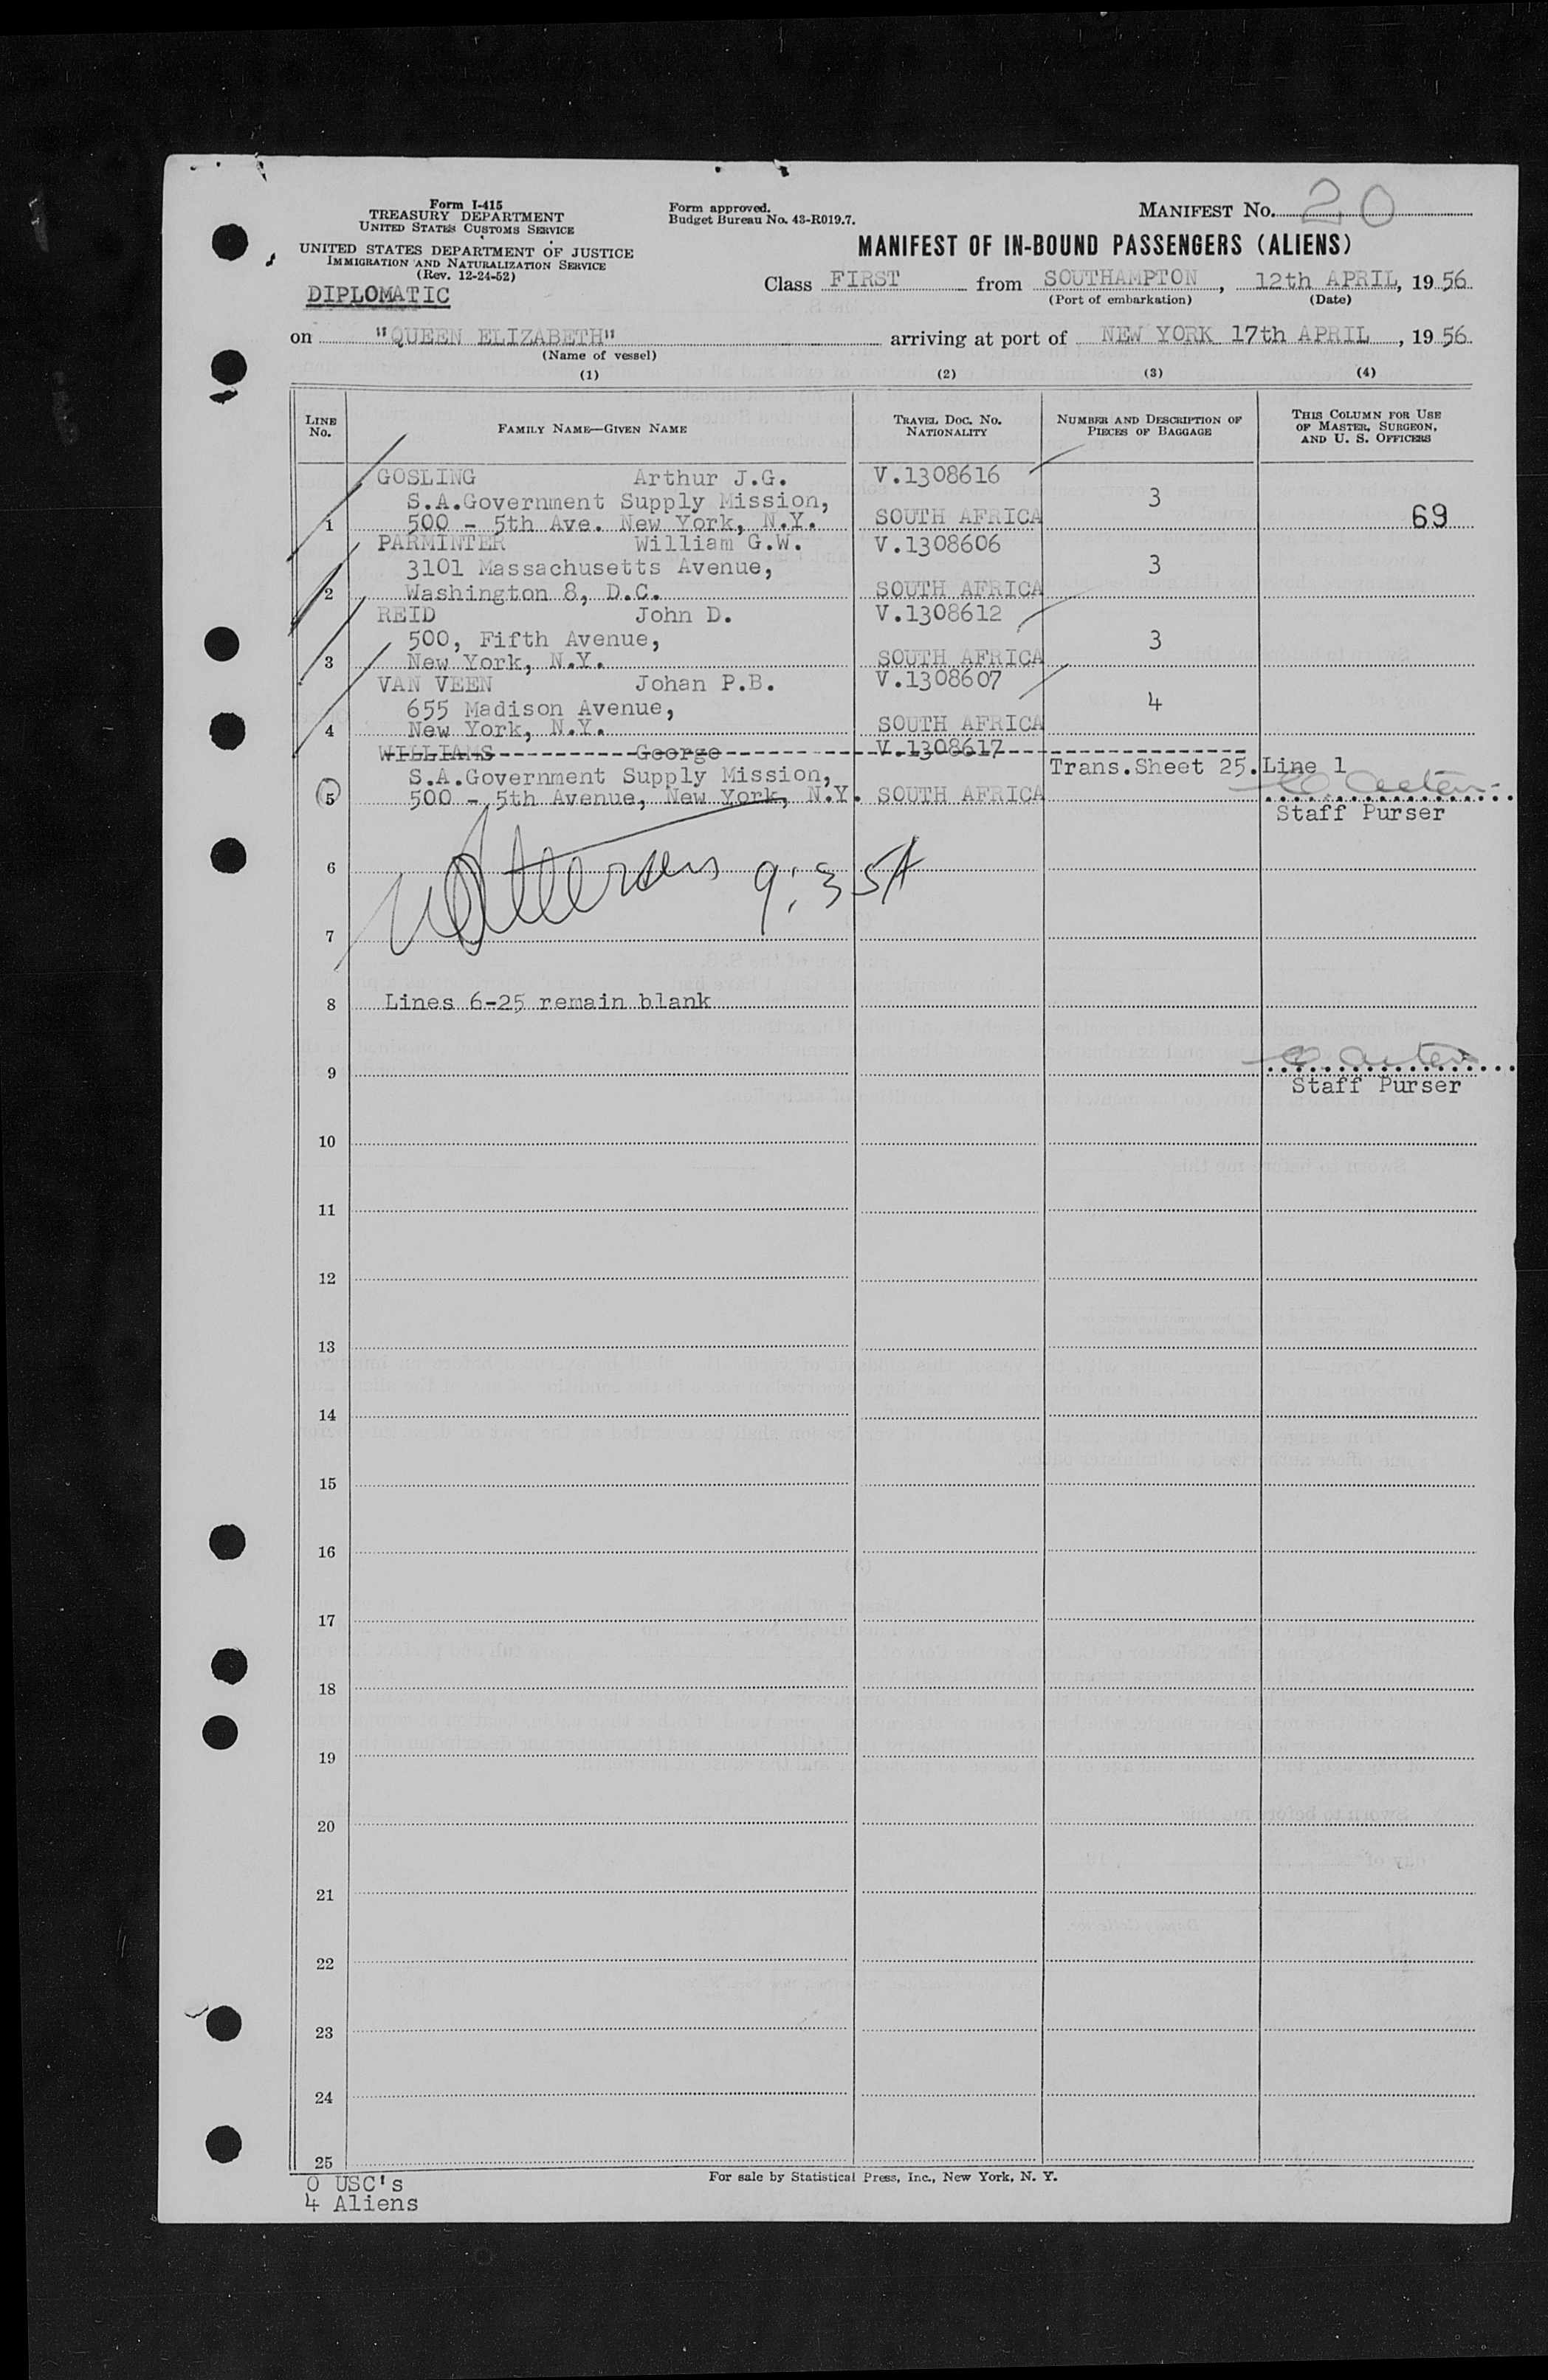 Form I-415
TREASURY DEPARTMENT
UNITED STATES CUSTOMS SERVICE
UNITED STATES DEPARTMENT OF JUSTICE
IMMIGRATION AND NATURALIZATION SERVICE
(Rev. 12-24-52)
DIPLOMATIC
Form approved.
Budget Bureau No. 43-R019.7.
MANIFEST NO. 20
MANIFEST OF IN-BOUND PASSENGERS (ALIENS)
Class FIRST from SOUTHAMPTON, 12th APRIL, 19 56
(Port of embarkation) (Date)
on "QUEEN ELIZABETH" arriving at port of NEW YORK 17th APRIL, 19 56
(Name of vessel)
(1) (2) (3) (4)
LINE NO. FAMILY NAME—GIVEN NAME TRAVEL DOC. NO. NATIONALITY NUMBER AND DESCRIPTION OF PIECES OF BAGGAGE THIS COLUMN FOR USE OF MASTER, SURGEON, AND U. S. OFFICERS
GOSLING Arthur J.G. V.1308616
S.A.Government Supply Mission, 3
1 500 - 5th Ave. New York, N.Y. SOUTH AFRICA 69
PARMINTER William G.W. V.1308606
3101 Massachusetts Avenue, 3
2 Washington 8, D.C. SOUTH AFRICA
REID John D. V.1308612
500, Fifth Avenue, 3
3 New York, N.Y. SOUTH AFRICA
VAN VEEN Johan P.B. V.1308607
655 Madison Avenue, 4
4 New York, N.Y. SOUTH AFRICA
WILLIAMS George V.1308617
S.A.Government Supply Mission, Trans.Sheet 25.Line 1
5 500 - 5th Avenue, New York, N.Y. SOUTH AFRICA
Staff Purser
6 9:35A
7
8 Lines 6-25 remain blank
9
Staff Purser
10
11
12
13
14
15
16
17
18
19
20
21
22
23
24
25
0 USC's
4 Aliens
For sale by Statistical Press, Inc., New York, N. Y.